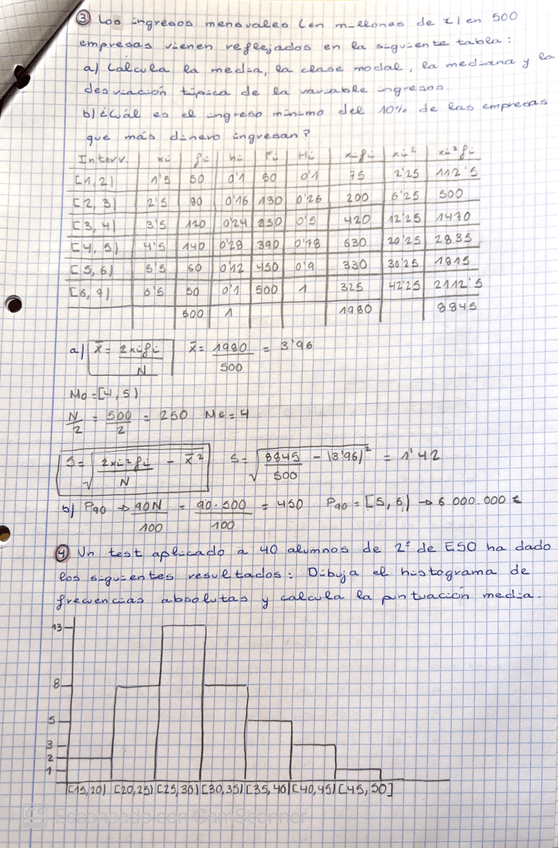 ③ Los ingresos mensuales (en millones de €) en 500
empresas vienen reflejados en la siguiente tabla:
a) Calcula la media, la clase modal, la mediana y la
desviación típica de la variable ingresos.
b) ¿Cuál es el ingreso mínimo del 10% de las empresas
que más dinero ingresan?
Interv. xi fi hi Fi Hi xifi xi² xi²fi
[1,2) 1'5 50 0'1 50 0'1 75 2'25 112'5
[2,3) 2'5 80 0'16 130 0'26 200 6'25 500
[3,4) 3'5 120 0'24 250 0'5 420 12'25 1470
[4,5) 4'5 140 0'28 390 0'78 630 20'25 2835
[5,6) 5'5 60 0'12 450 0'9 330 30'25 1815
[6,7) 6'5 50 0'1 500 1 325 42'25 2112'5
500 1 1980 8845
a) x̄ = Σxifi/N x̄ = 1980/500 = 3'96
Mo = [4,5)
N/2 = 500/2 = 250 Me = 4
S = √(Σxi²fi/N - x̄²) S = √(8845/500 - (3'96)²) = 1'42
b) P90 → 90N/100 = 90·500/100 = 450 P90 = [5,6) → 6.000.000 €
④ Un test aplicado a 40 alumnos de 2º de ESO ha dado
los siguientes resultados: Dibuja el histograma de
frecuencias absolutas y calcula la puntuación media.
13
8
5
3
2
1
[15,20) [20,25) [25,30) [30,35) [35,40) [40,45) [45,50]
CS Escaneado con CamScanner